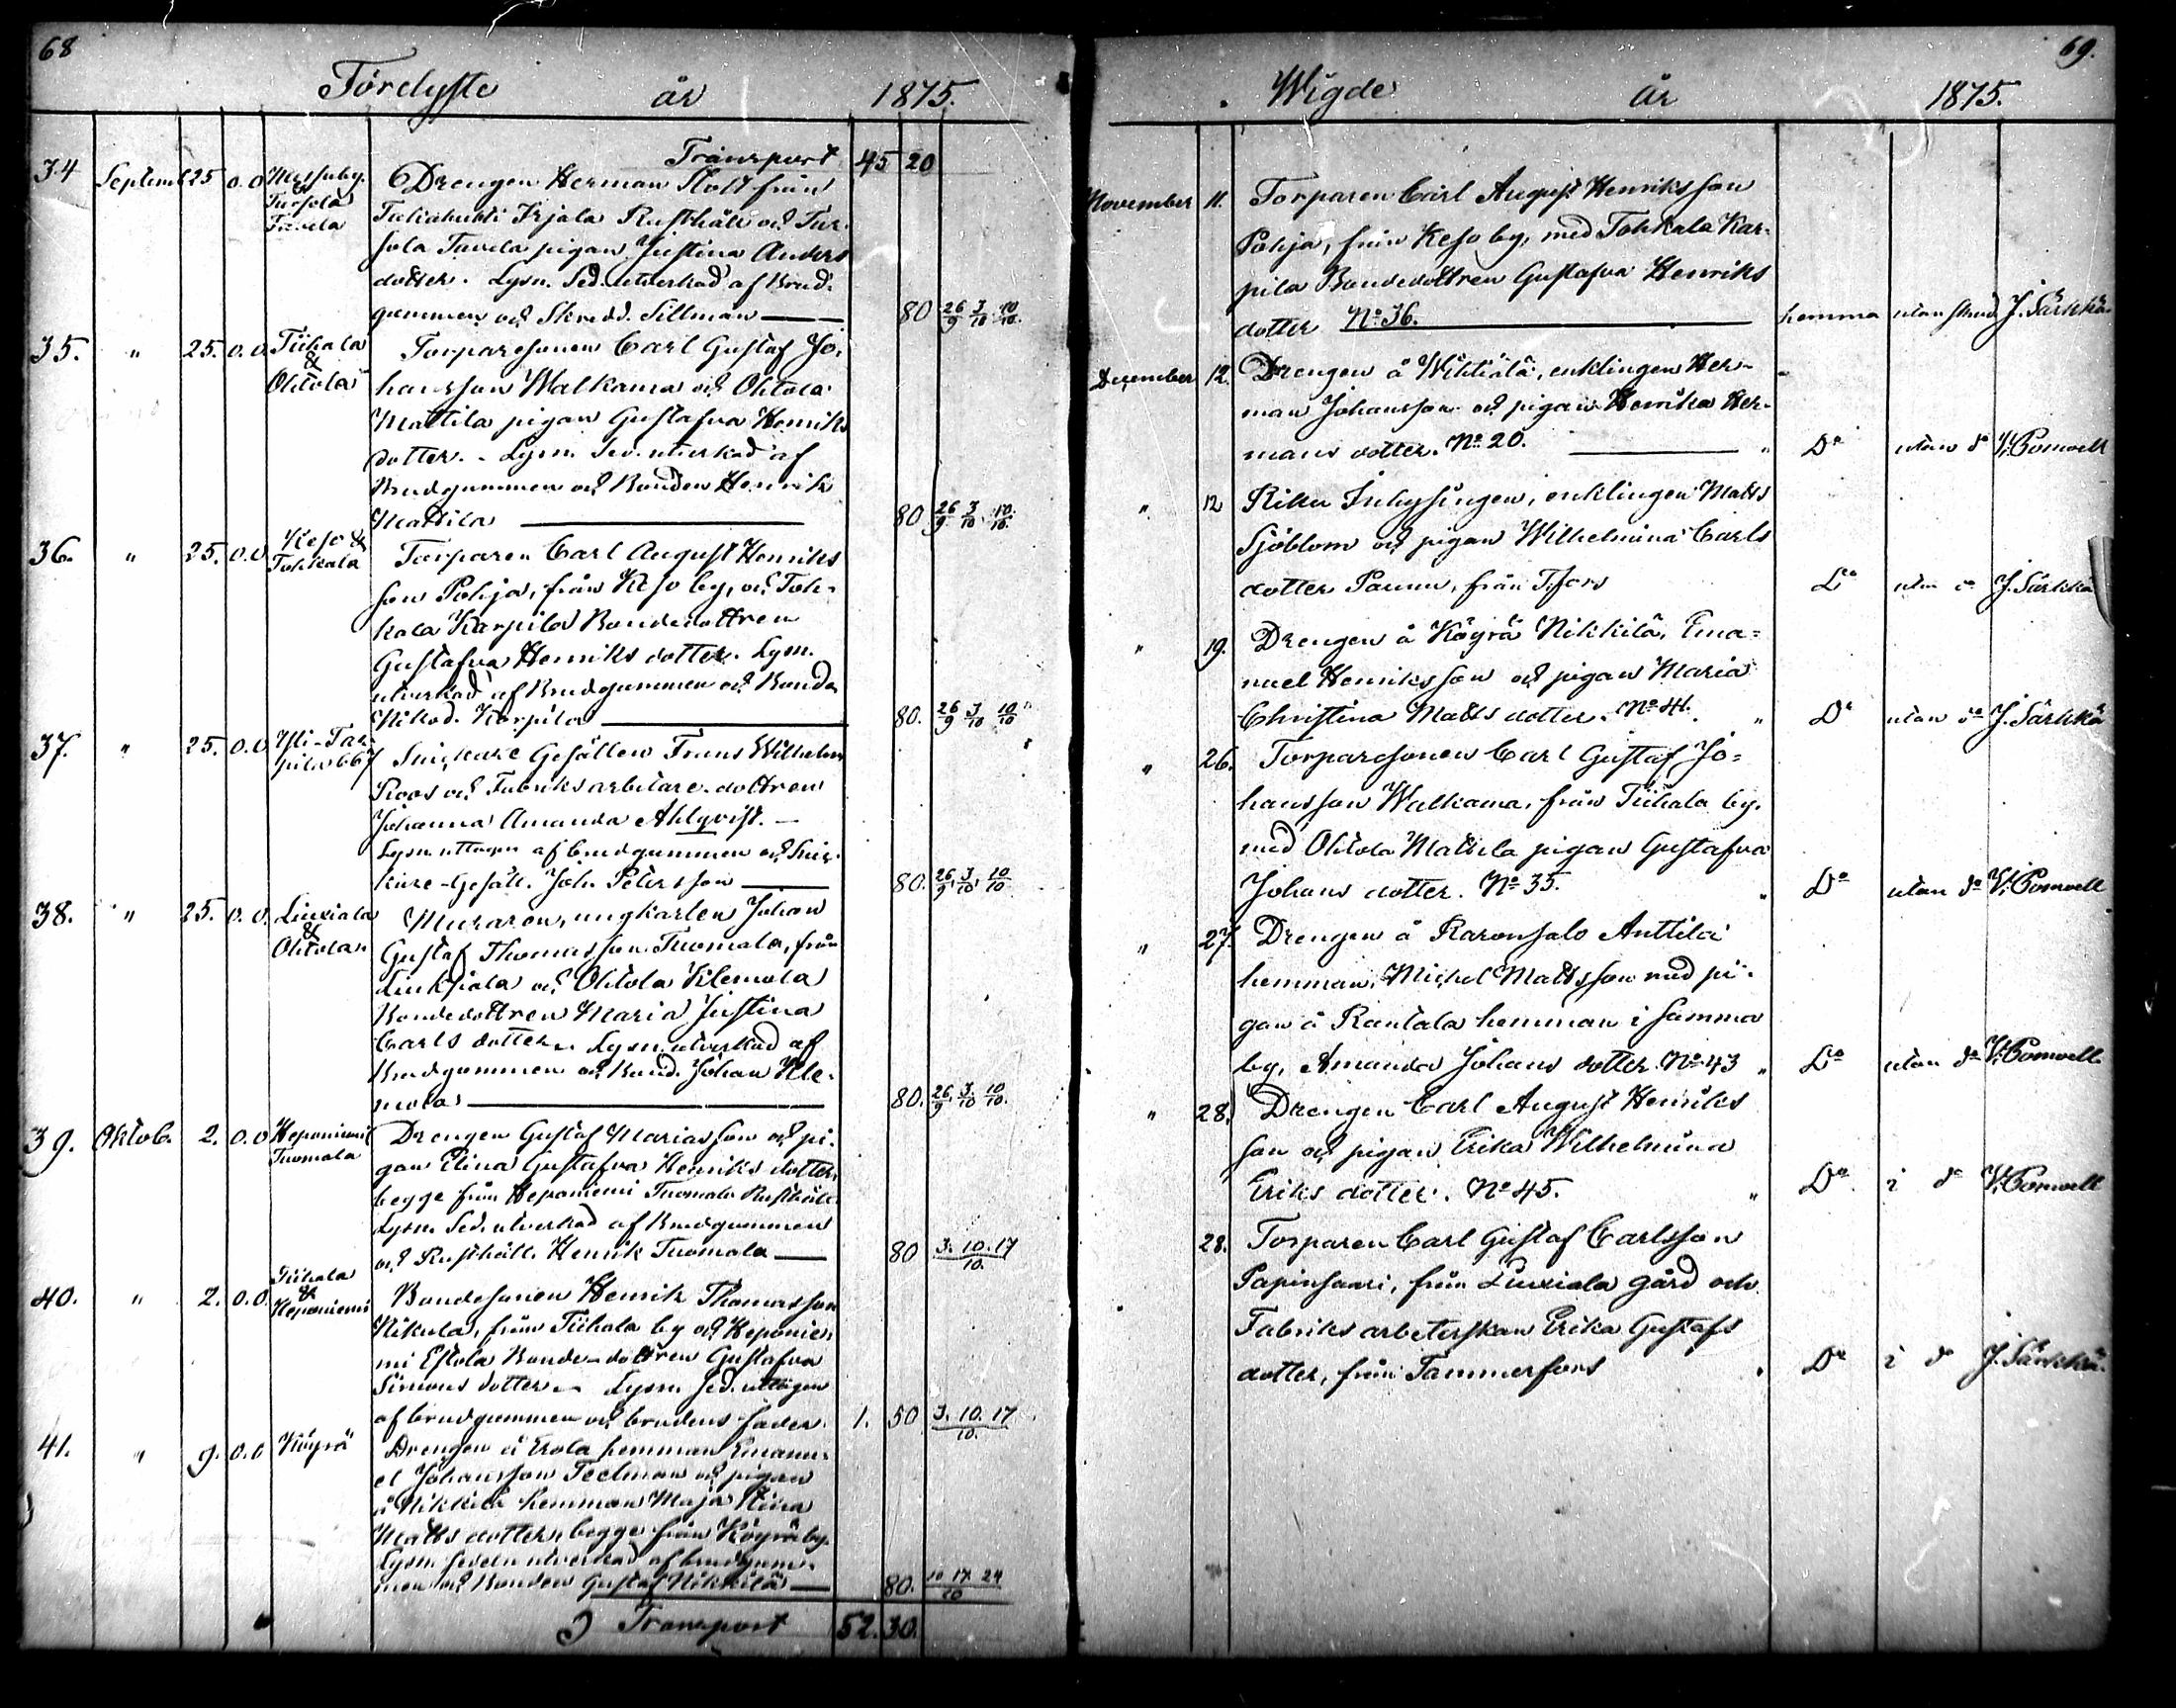 68
Förelyste år 1875.
Transport 45 20
34 Septemb 25 0.0 Messuby & Tursola Tavela Drengen Herman Stolt från
Irjala Rusthåll och Tur-
sola Tavela pigan Justina Anders
dotter. Lysn. Sed. utverkad af Brud-
gummen och Skredd. Sillman 80 26/9 3/10 10/10.
35. " 25. 0.0 Tiihala & Ohtola Torparesonen Carl Gustaf Jo-
hansson Walkama och Ohtola
Mattila pigan Gustafva Henriks
dotter. - Lysn. Sed. utverkad af
Brudgummen och Bonden Henrik
Mattila 80 26/9 3/10 10/10.
36. " 25. 0.0 Keso & Tohkala Torparen Carl August Henriks
son Pohja, från Keso by, och Toh-
kala Karpila Bondedottren
Gustafva Henriks dotter. Lysn.
utverkad af Brudgummen och Bonden
Nikod. Karpila 80. 26/9 3/10 10/10
37. " 25. 0.0 Snickare Gesällen Frans Wilhelm
Roos och Fabriksarbetare-dottren
Johanna Amanda Ahlqvist. -
Lysn. uttagen af brudgummen och Snic-
kare-Gesäll. Joh. Petersson 80. 26/9 3/10 10/10
38. " 25. 0.0. Liuxiala & Ohtola Muraren, ungkarlen Johan
Gustaf Thomasson Tuomala, från
Liuksiala och Ohtola Klemola
Bondedottren Maria Justina
Carls dotter. Lysn. utverkad af
Brudgummen och Bond. Johan Kle-
mola 80. 26/9 3/10 10/10.
39. Oktob. 2. 0.0 Heponiemi Tuomala Drengen Gustaf Mariasson och pi-
gan Elina Gustafva Henriks dotter,
begge från Heponiemi Tuomala Rusthåll.
Lysn. Sed. utverkad af Brudgummen
och Rusthåll. Henrik Tuomala 80 3. 10. 17/10.
40. " 2. 0.0. Tiihala & Heponiemi Bondesonen Henrik Thomasson
Nikula, från Tiihala by och Heponie-
mi Estola Bonde-dottren Gustafva
Simons dotter. Lysn. sed. uttagen
af brudgummen och brudens fader. 1. 50 3. 10. 17/10.
41. " 9. 0.0 Köyrä Drengen å Erola hemman Emanu-
el Johansson Teelman och pigan
å Nikkilä hemman Maja Stina
Matts dotter, begge från Köyrä by.
Lysn. sedeln utverkad af brudgum-
men och Bonden Gustaf Nikkilä 80. 10 17. 24/10
Transport 52. 30.
69.
Wigde år 1875.
November 11. Torparen Carl August Henriksson
Pohja, från Keso by, med Tohkala Kar-
pila Bondedottren Gustafva Henriks
dotter No 36. hemma utan J. Särkkä
December 12. Drengen å Wihtiälä, enklingen Her-
man Johansson och pigan Henrika Her-
mans dotter. No 20. Do utan do V. Bonwell
" 12 Inhysingen, enklingen Matts
Sjöblom och pigan Wilhelmina Carls
dotter från T.fors Do utan do J. Särkkä
" 19. Drengen å Köyrä Nikkilä, Ema-
nuel Henriksson och pigan Maria
Christina Matts dotter. No 41. " Do utan do J. Särkkä
" 26. Torparesonen Carl Gustaf Jo-
hansson Walkama, från Tiihala by,
med Ohtola Mattila pigan Gustafva
Johans dotter. No 35. " Do utan do V. Bonwell
" 27. Drengen å Anttila
hemman, Michel Mattsson med pi-
gan å Rantala hemman i samma
by, Amanda Johans dotter No 43 " Do utan do V. Bonwell
" 28. Drengen Carl August Henriks
son och pigan Erika Wilhelmina
Eriks dotter. No 45. " Do i do V. Bonwell
28. Torparen Carl Gustaf Carlsson
Papinsaari, från Liuxiala gård och
Fabriks arbeterskan Erika Gustafs
dotter, från Tammerfors Do i do J. Särkkä.